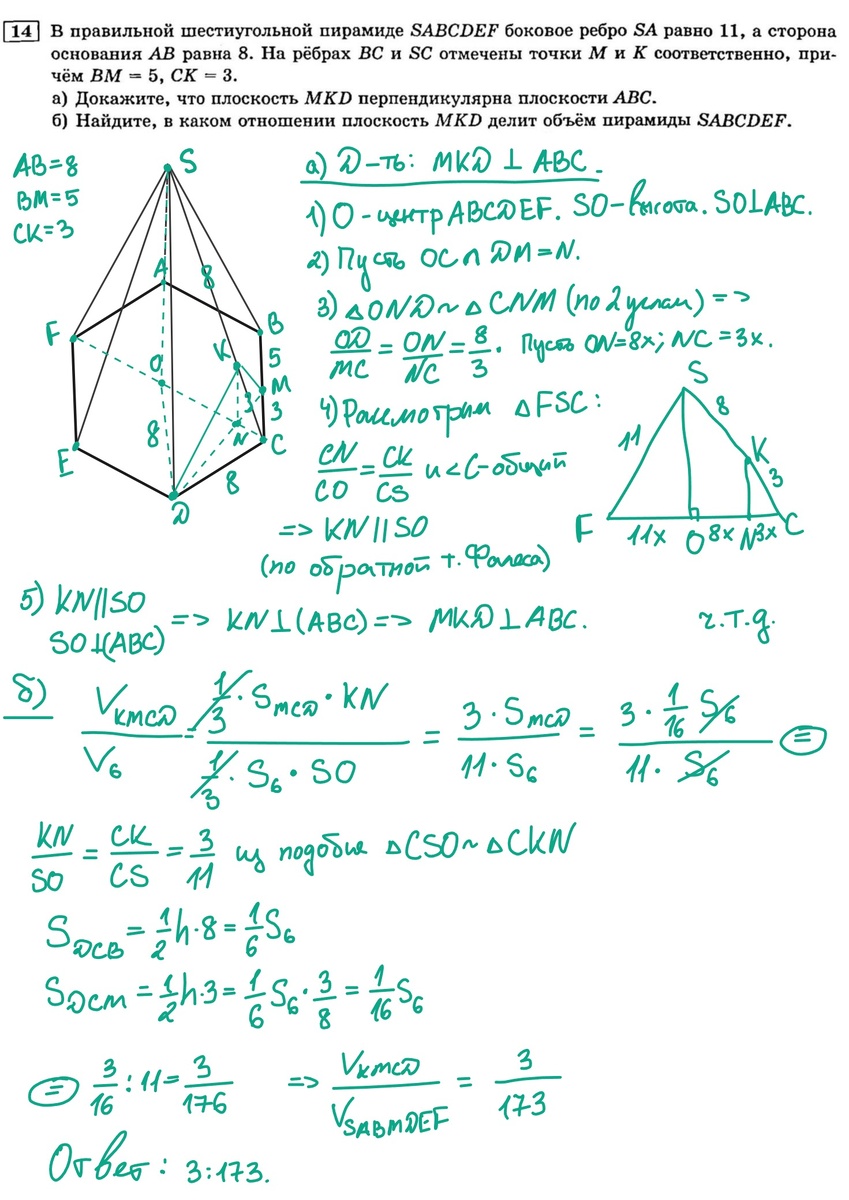 14 В правильной шестиугольной пирамиде SABCDEF боковое ребро SA равно 11, а сторона
основания AB равна 8. На рёбрах BC и SC отмечены точки M и K соответственно, при-
чём BM = 5, CK = 3.
а) Докажите, что плоскость MKD перпендикулярна плоскости ABC.
б) Найдите, в каком отношении плоскость MKD делит объём пирамиды SABCDEF.
AB=8
BM=5
CK=3
S
A
8
F
B
K
5
O
M
3
3
N
C
8
E
8
D
а) Д-ть: MKD ⊥ ABC.
1) O - центр ABCDEF. SO - высота. SO⊥ABC.
2) Пусть OC ∩ DM = N.
3) △OND ~ △CNM (по 2 углам) =>
OD/MC = ON/NC = 8/3. Пусть ON=8x; NC=3x.
4) Рассмотрим △FSC:
CN/CO = CK/CS и <C-общий
=> KN || SO
(по обратной т. Фалеса)
S
11
8
K
3
F
11x
O
8x
N
3x
C
5) KN||SO
SO⊥(ABC) => KN⊥(ABC) => MKD ⊥ ABC. ч.т.д.
б) V_KMCD/V_6 = (1/3 · S_MCD · KN)/(1/3 · S_6 · SO) = (3 · S_MCD)/(11 · S_6) = (3 · 1/16 S_6)/(11 · S_6) =
KN/SO = CK/CS = 3/11 из подобия △CSO ~ △CKN
S_DCB = 1/2 h·8 = 1/6 S_6
S_DCM = 1/2 h·3 = 1/6 S_6 · 3/8 = 1/16 S_6
= 3/16 : 11 = 3/176 => V_KMCD/V_SABMDEF = 3/173
Ответ: 3:173.